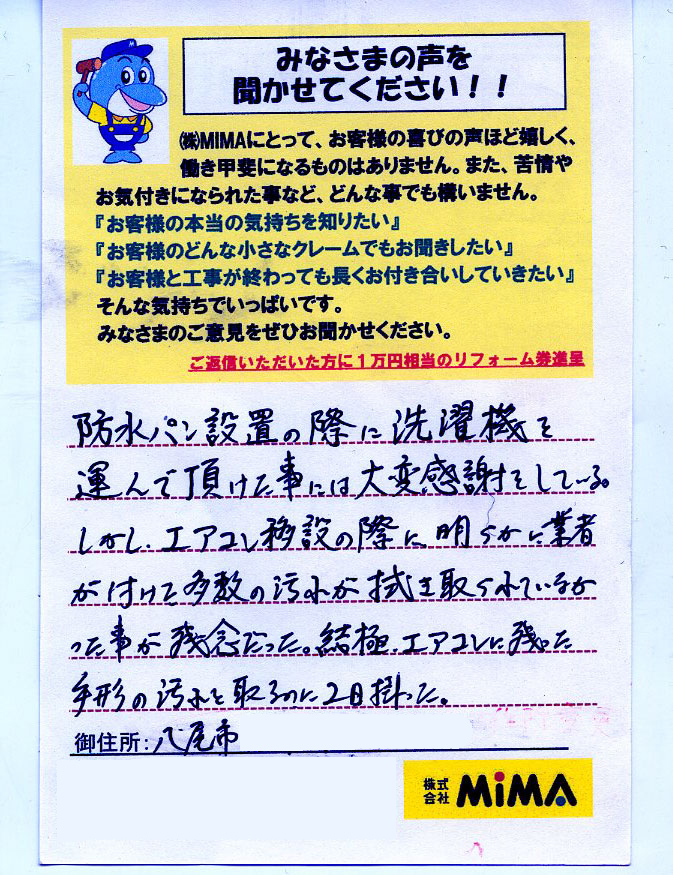 みなさまの声を
聞かせてください！！
㈱MIMAにとって、お客様の喜びの声ほど嬉しく、
働き甲斐になるものはありません。また、苦情や
お気付きになられた事など、どんな事でも構いません。
『お客様の本当の気持ちを知りたい』
『お客様のどんな小さなクレームでもお聞きしたい』
『お客様と工事が終わっても長くお付き合いしていきたい』
そんな気持ちでいっぱいです。
みなさまのご意見をぜひお聞かせください。
ご返信いただいた方に１万円相当のリフォーム券進呈
防水パン設置の際に洗濯機を
運んで頂けた事には大変感謝をしている。
しかし、エアコン移設の際に明らかに業者
が付けた多数の汚れが拭き取られていなか
った事が残念だった。結極、エアコンに残った
手形の汚れを取るのに2日掛った。
御住所：八尾市
株式会社 MiMA